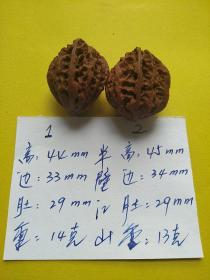 1 2
高:44mm 半 高:45mm
边:33mm 壁 边:34mm
肚:29mm 江 肚:29mm
重:14克 山 重:13克